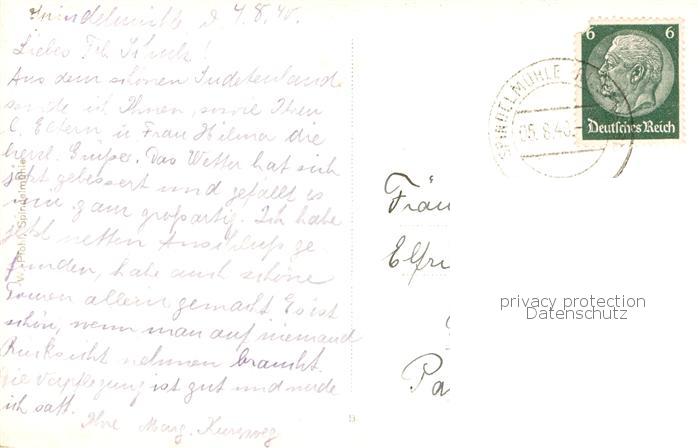 Spindelmühle d. 4.8.40.
Liebes Frl.
Aus dem schönen Sudetenland
sende ich Ihnen, sowie Ihren
l. Eltern u Frau Hilma die
herzl. Grüße. Das Wetter hat sich
jetzt gebessert und gefällt es
mir ganz großartig. Ich habe
jetzt netten Anschluß ge-
funden, habe auch schöne
Touren allein gemacht. Es ist
schön, wenn man auf niemand
Rücksicht nehmen braucht.
Die Verpflegung ist gut und werde
ich satt.
Ihre Marg.
Spindelmühle
6 6
Deutsches Reich
SPINDELMÜHLE
05.8.40
Fräu
Elfri
Pa
privacy protection
Datenschutz